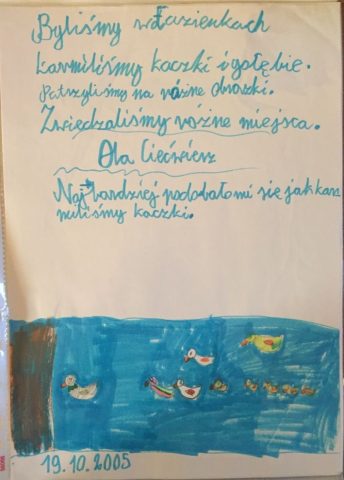 Byliśmy w Łazienkach
karmiliśmy kaczki i gołębie.
Patrzyliśmy na różne obrazki.
Zwiedzaliśmy różne miejsca.
Ola
Najbardziej podobało mi się jak kar
miliśmy kaczki.
19.10.2005